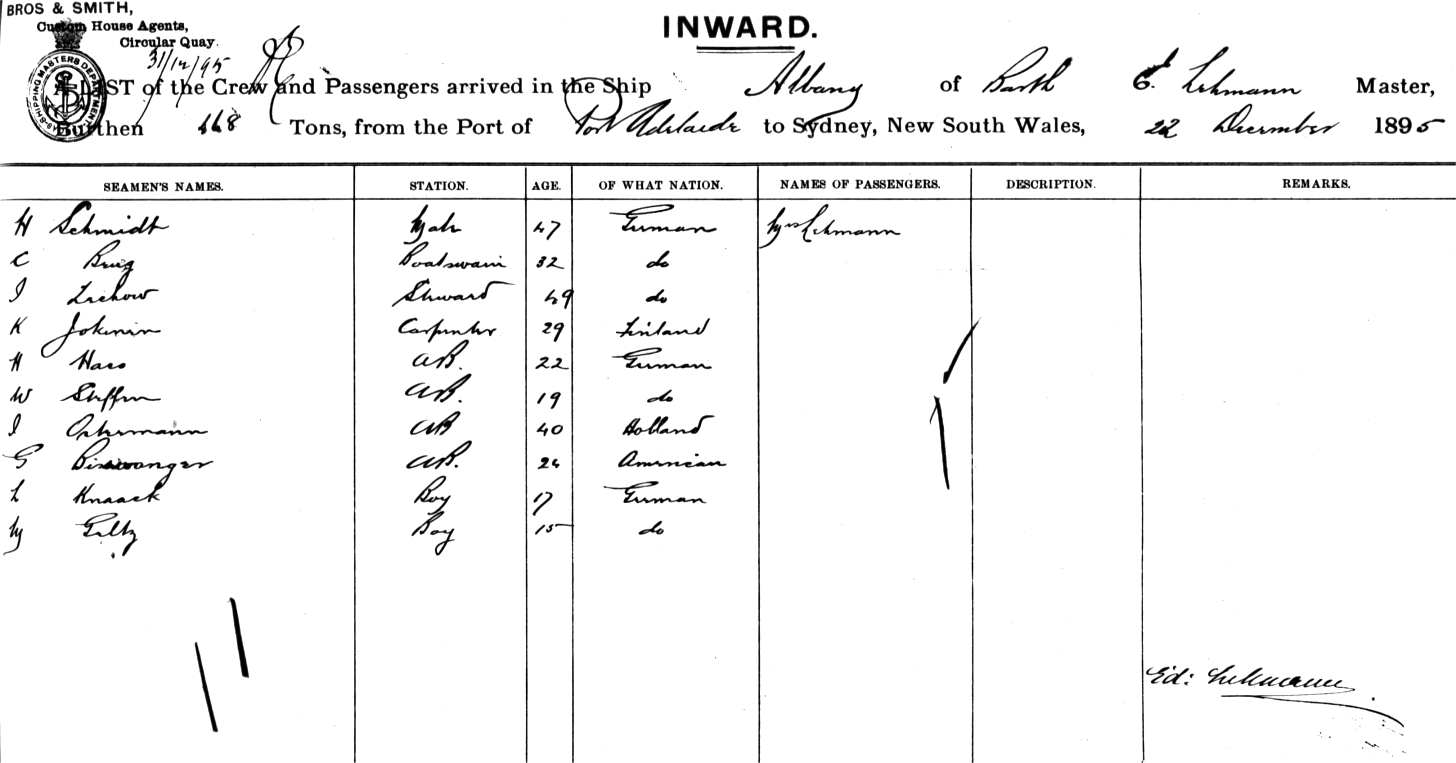 BROS & SMITH,
Custom House Agents,
Circular Quay.
INWARD.
31/12/95
SHIPPING MASTERS DEPARTMENT
A LIST of the Crew and Passengers arrived in the Ship Albany of Barth E. Lehmann Master,
Burthen 468 Tons, from the Port of Port Adelaide to Sydney, New South Wales, 22 December 1895
SEAMEN'S NAMES. STATION. AGE. OF WHAT NATION. NAMES OF PASSENGERS. DESCRIPTION. REMARKS.
H Schmidt Mate 47 German Mrs Lehmann
C Brug Boatswain 32 do
J Zechow Steward 49 do
K Jokinin Carpenter 29 Finland
H Haso AB. 22 German
W Steffen AB. 19 do
J Ackermann AB 40 Holland
G Binswanger AB. 24 American
L Knaack Boy 17 German
M Giltz Boy 15 do
Ed: Lehmann